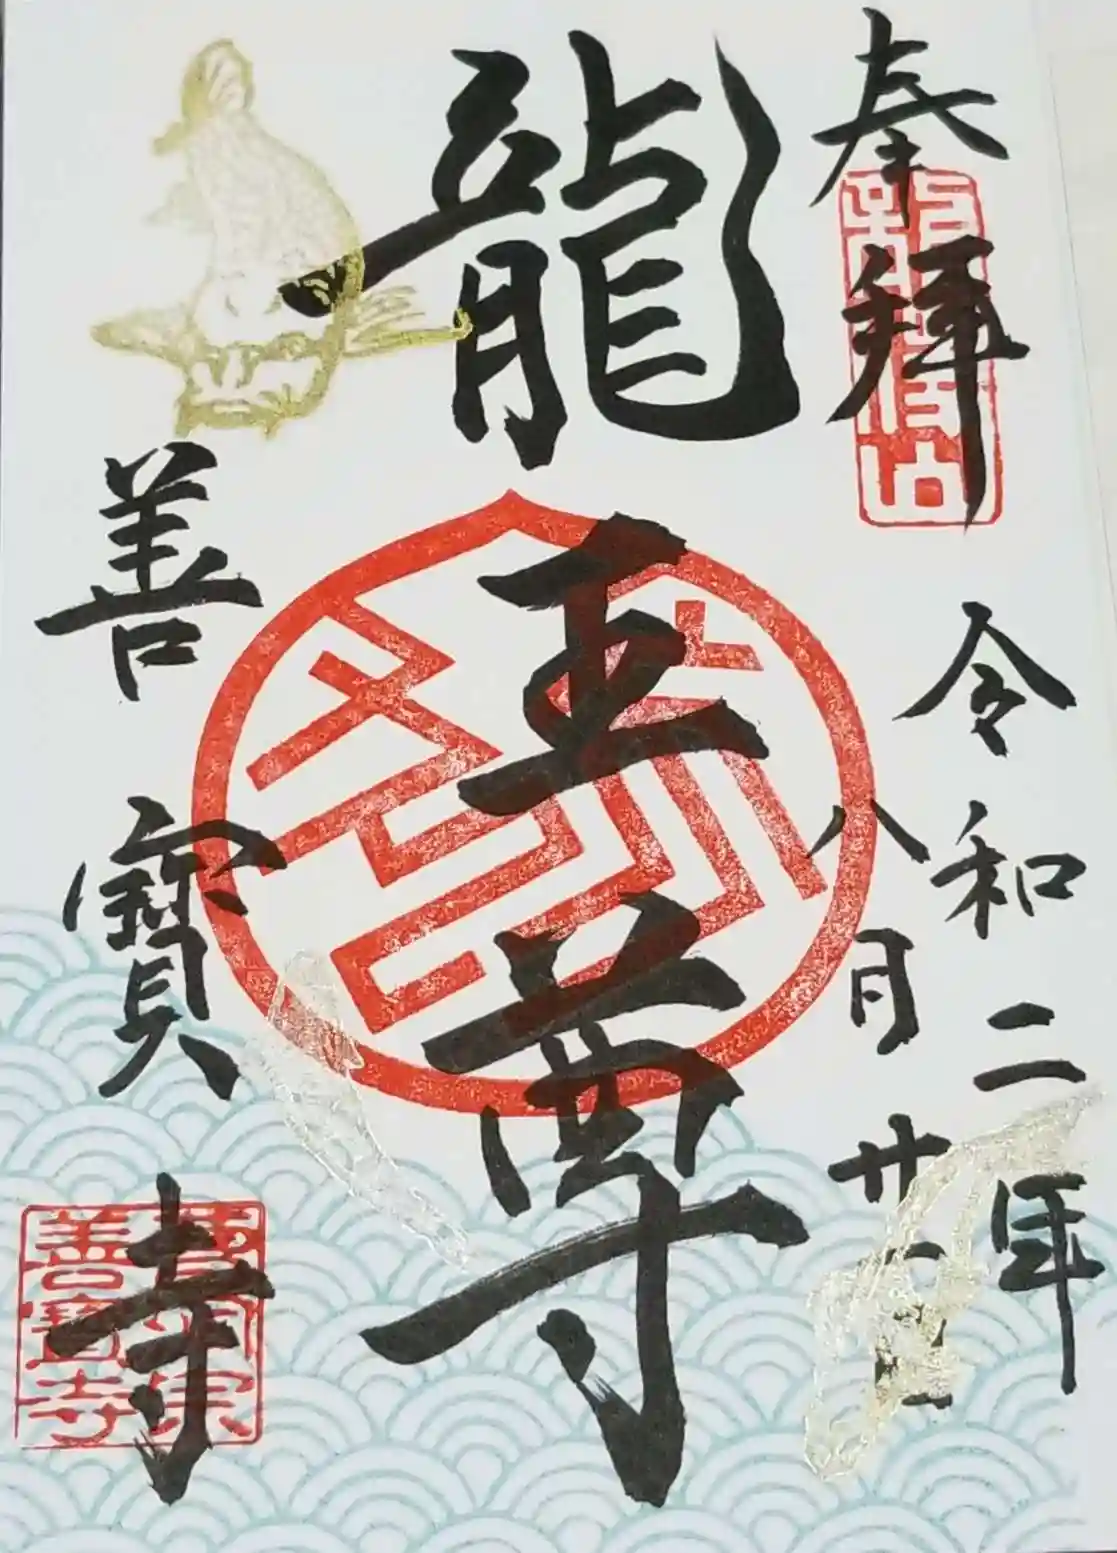 奉拜
令和二年
八月廿一日
龍王尊
善寶寺
善寶寺